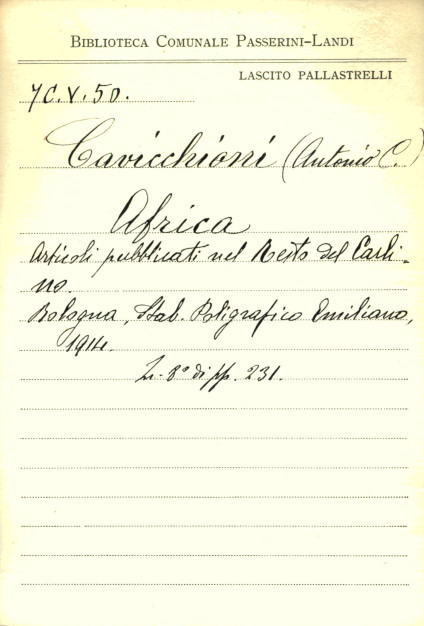 BIBLIOTECA COMUNALE PASSERINI-LANDI
LASCITO PALLASTRELLI
7C.V.50.
Cavicchioni (Antonio C.)
Africa
Articoli pubblicati nel Resto del Carli-
no.
Bologna, Stab. Poligrafico Emiliano,
1914.
In-8° di pp. 231.